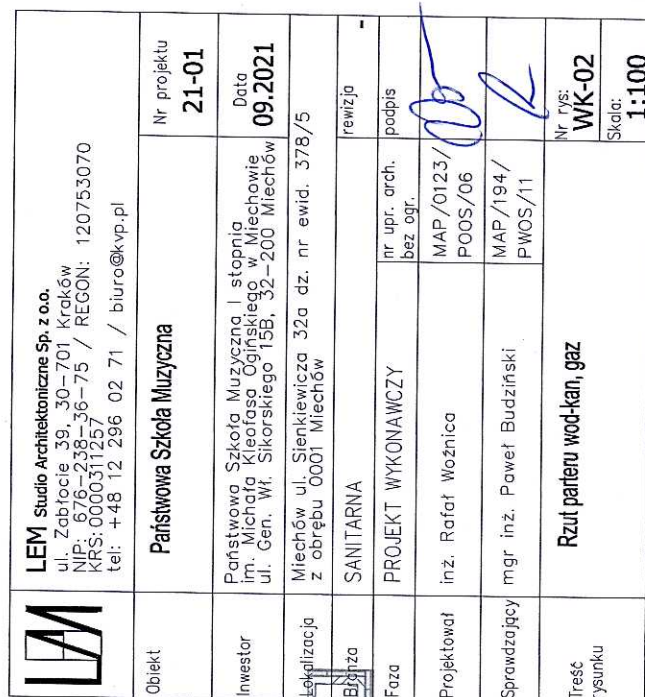 LEM Studio Architektoniczne Sp. z o.o.
ul. Zabłocie 39, 30-701 Kraków
NIP: 676-238-36-75 / REGON: 120753070
KRS: 0000311257
tel: +48 12 296 02 71 / biuro@kvp.pl
Obiekt
Państwowa Szkoła Muzyczna
Nr projektu
21-01
Inwestor
Państwowa Szkoła Muzyczna I stopnia
im. Michała Kleofasa Ogińskiego w Miechowie
ul. Gen. Wł. Sikorskiego 15B, 32-200 Miechów
Data
09.2021
Lokalizacja
Miechów ul. Sienkiewicza 32a dz. nr ewid. 378/5
z obrębu 0001 Miechów
Branża
SANITARNA
rewizja -
Faza
PROJEKT WYKONAWCZY
nr upr. arch.
bez ogr.
podpis
Projektował
inż. Rafał Woźnica
MAP/0123/
POOS/06
Sprawdzający
mgr inż. Paweł Budziński
MAP/194/
PWOS/11
Treść
rysunku
Rzut parteru wod-kan, gaz
Nr rys:
WK-02
Skala:
1:100